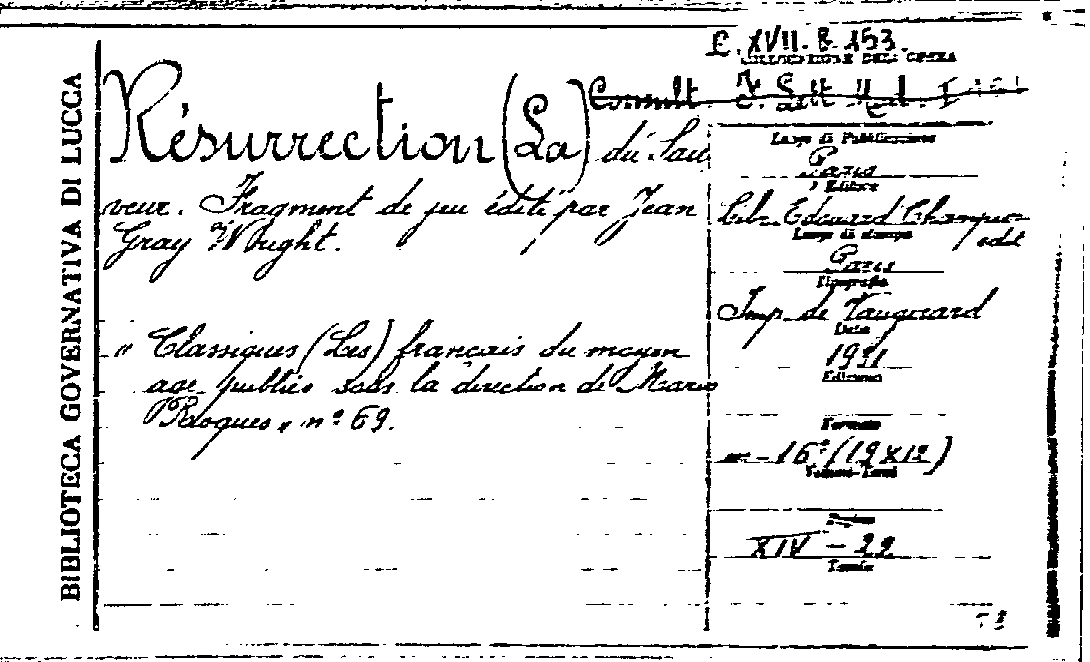 BIBLIOTECA GOVERNATIVA DI LUCCA
E. XVII. B. 153.
COLLOCAZIONE DELL'OPERA
Consult. F. Sett. Med. I
Résurrection (La) du Sau
veur. Fragment de jeu édité par Jean
Gray Wright.
" Classiques (Les) français du moyen
age publiés sous la direction de Mario
Roques " n° 69.
Luogo di Pubblicazione
Paris
Editore
Libr. Edouard Champion
edit
Luogo di stampa
Paris
Tipografia
Imp. de Vaugirard
Data
1931
Edizione
Formato
16° (19 X 12)
Volumi - Tomi
Pagine
XIV - 22
Tavole